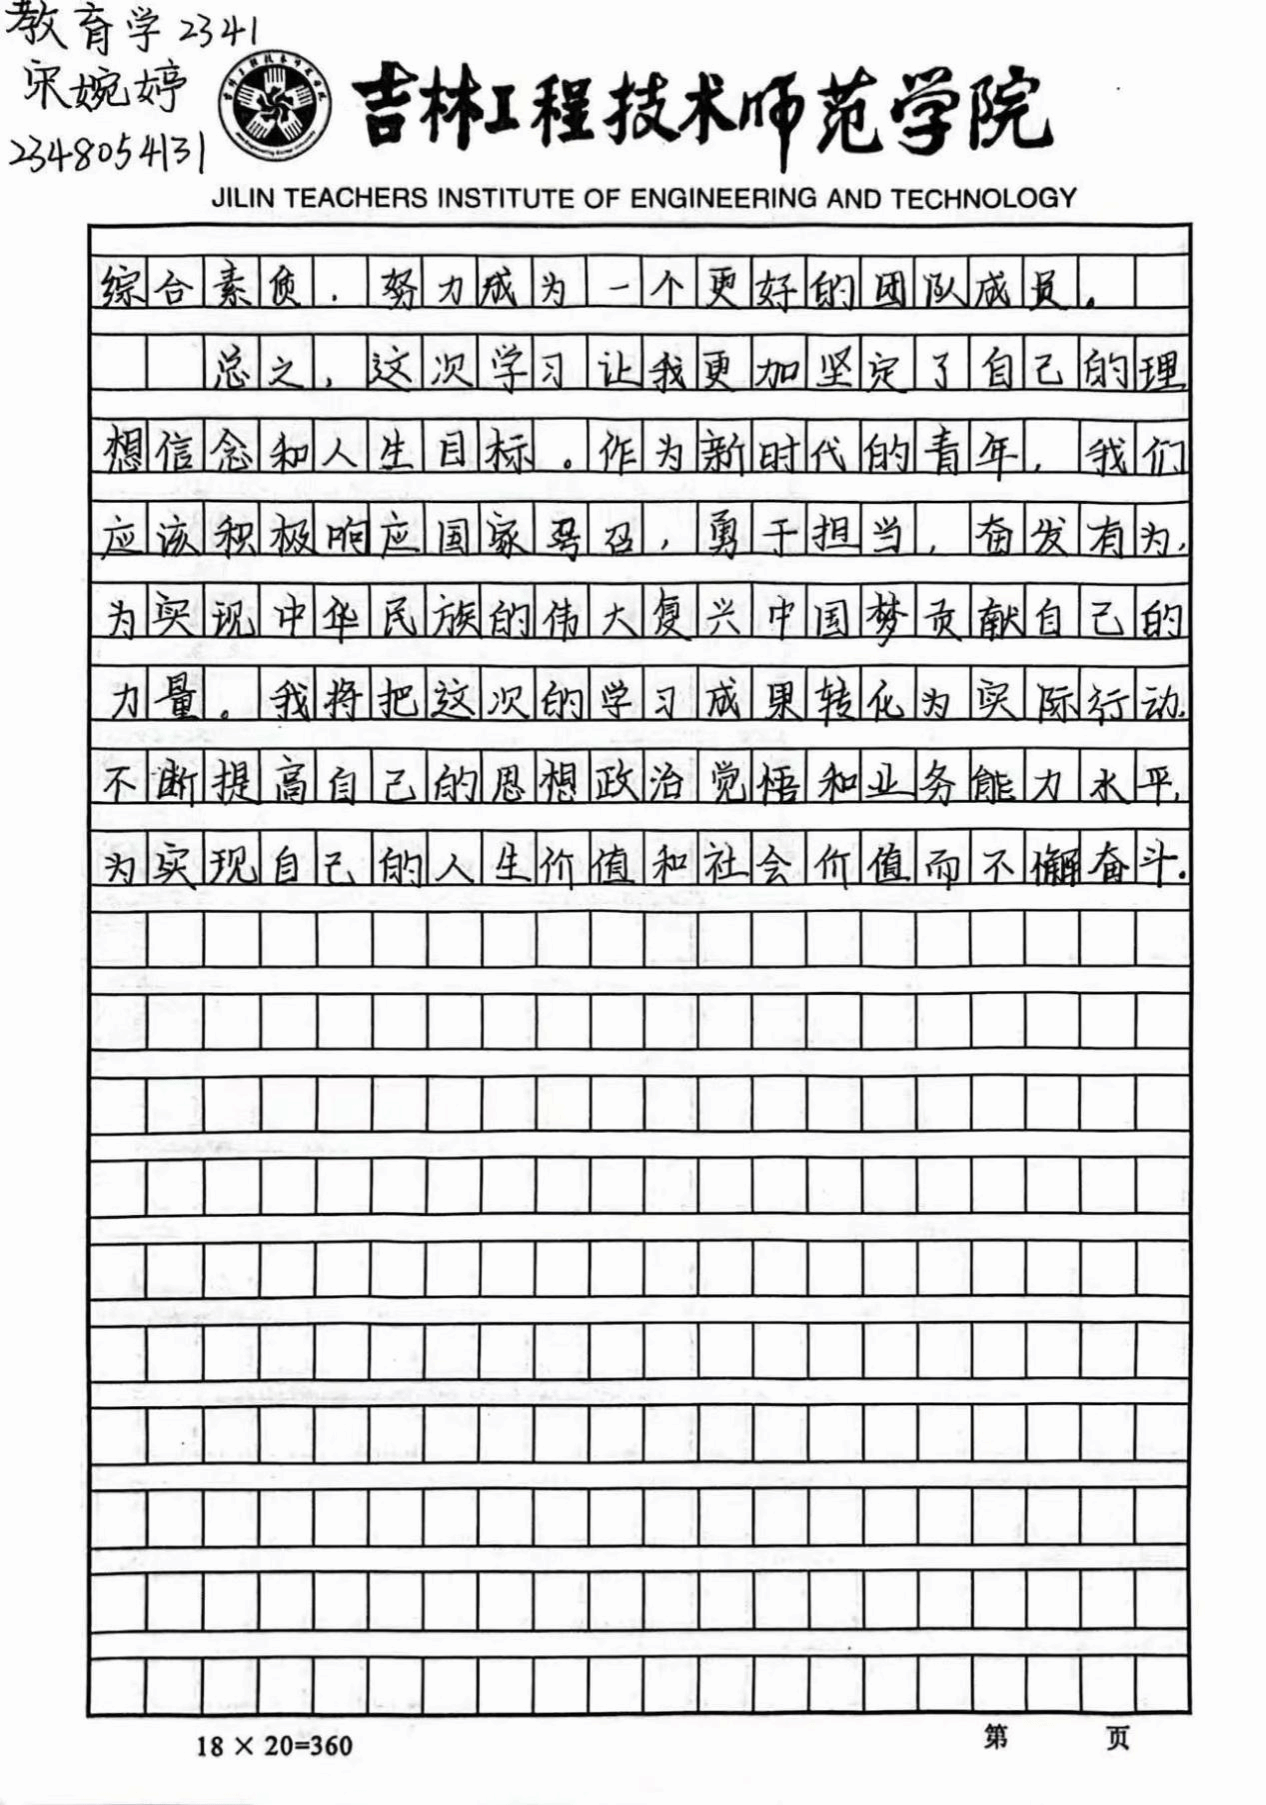 教育学2341
宋婉婷
2348054131
吉林工程技术师范学院
JILIN TEACHERS INSTITUTE OF ENGINEERING AND TECHNOLOGY
综合素质，努力成为一个更好的团队成员。
总之，这次学习让我更加坚定了自己的理
想信念和人生目标。作为新时代的青年，我们
应该积极响应国家号召，勇于担当，奋发有为，
为实现中华民族的伟大复兴中国梦贡献自己的
力量。我将把这次的学习成果转化为实际行动，
不断提高自己的思想政治觉悟和业务能力水平，
为实现自己的人生价值和社会价值而不懈奋斗。
18 × 20=360
第 页